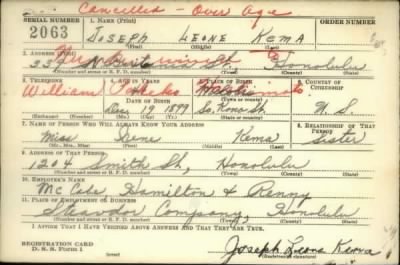 Cancelled - Over Age
SERIAL NUMBER
1. NAME (Print)
2063
JOSEPH LEONE KEMA
(First) (Middle) (Last)
2. ADDRESS (Print)
Honolulu
3. TELEPHONE
4. AGE IN YEARS
5. PLACE OF BIRTH
6. COUNTRY OF CITIZENSHIP
William
DATE OF BIRTH
(Town or county)
Dec 19 1899
So. Kona
U. S.
(Exchange) (Number) (Mo.) (Day) (Yr.) (State or country)
7. NAME OF PERSON WHO WILL ALWAYS KNOW YOUR ADDRESS
8. RELATIONSHIP OF THAT PERSON
Miss Rene Kema Sister
(Mr., Mrs., Miss) (First) (Middle) (Last)
9. ADDRESS OF THAT PERSON
1204 Smith St., Honolulu
(Number and street or R. F. D. number) (Town) (County) (State)
10. EMPLOYER'S NAME
McCabe Hamilton & Renny
11. PLACE OF EMPLOYMENT OR BUSINESS
Company, Honolulu
(Number and street or R. F. D. number) (Town) (County) (State)
I AFFIRM THAT I HAVE VERIFIED ABOVE ANSWERS AND THAT THEY ARE TRUE.
REGISTRATION CARD
D. S. S. Form 1
Joseph Leone Kema
(Registrant's signature)